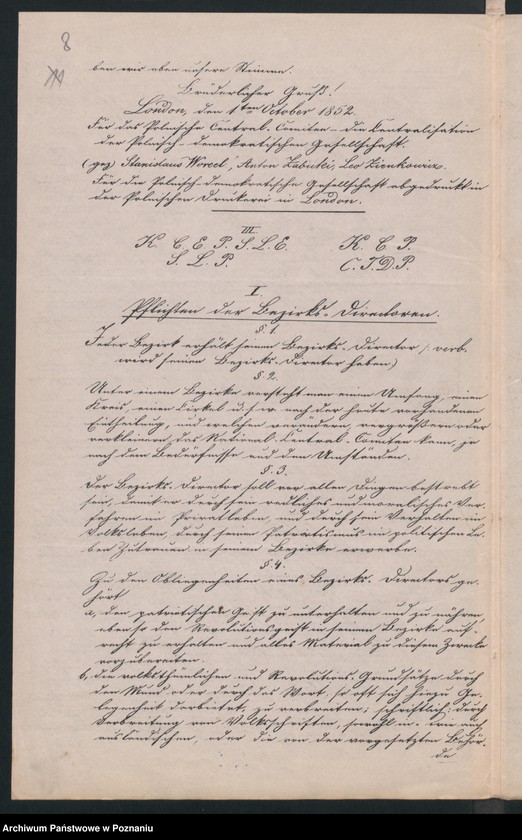 8
ben wir aben unsere Stimme.
Brüderlicher Gruß!
London, den 1ten October 1852.
Für das Polnische Central-Comitee - die Centralisation
der Polnisch-demokratischen Gesellschaft.
(gez) Stanislaus Worcel, Anton Żabicki, Leo Zienkowicz.
Für die Polnisch-demokratische Gesellschaft abgedruckt in
der Polnischen Druckerei in London.
III
K. C. E. P. S. L. E. K. C. P.
S. L. P. C. T. D. P.
I.
Pflichten der Bezirks-Directoren.
§. 1.
Jeder Bezirk erhält seinen Bezirks-Director (: verb.
wird seinen Bezirks-Director haben)
§. 2.
Unter einem Bezirke versteht man einen Umfang, einen
Kreis, einen Zirkel u. s. w. nach der heute vorhandenen
Eintheilung, und welchen verändern, vergrößern oder
verkleinern, das National-Central-Comitee kann, je
nach den Bedürfnissen und den Umständen.
§. 3.
Der Bezirks-Director soll vor allen Dingen bestrebt
sein, damit er durch sein redliches und moralisches Ver-
fahren im Privatleben, und durch sein Verhalten im
Volksleben, durch seinen Patriotismus im politischen Le-
ben Zutrauen in seinem Bezirke erwerbe.
§. 4.
Zu den Obliegenheiten eines Bezirks-Directors ge-
hört
a, den patriotischen Geist zu unterhalten und zu nähren,
ebenso den Revolutionsgeist in seinem Bezirke auf-
recht zu erhalten und alles Material zu diesem Zwecke
vorzubereiten
b, die volksthümlichen und Revolutions-Grundsätze durch
den Mund oder durch das Wort, so oft sich hiezu Ge-
legenheit darbietet, zu verbreiten; schriftlich: durch
Verbreitung von Volksschriften, sowohl in- wie auch
ausländischen, oder die von der vorgesetzten Behör-
de
Archiwum Państwowe w Poznaniu